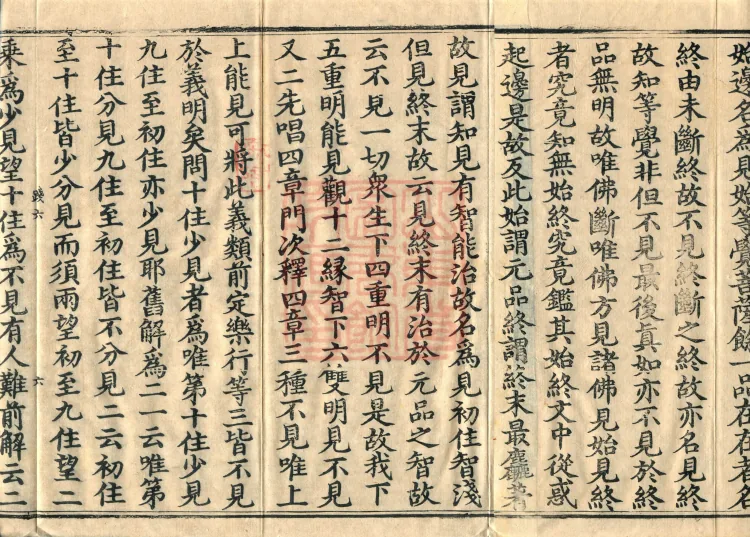 始邊名爲見始等覺菩薩餘一品在在者名
終由未斷終故不見終斷之終故亦名見終
故知等覺非但不見最後眞如亦不見於終
品無明故唯佛斷唯佛方見諸佛見始見終
者究竟知無始終究竟鑑其始終文中從惑
起邊是故反此始謂元品終謂終末最麤著
故見謂知見有智能治故名爲見初住智淺
但見終末故云見終末有治於元品之智故
云不見一切衆生下四重明不見是故我下
五重明能見觀十二縁智下六雙明見不見
又二先唱四章門次釋四章三種不見唯上
上能見可將此義類前定樂行等三皆不見
於義明矣問十住少見者爲唯第十住少見
九住至初住亦少見耶舊解爲二一云唯第
十住分見九住至初住皆不分見二云初住
至十住皆少分見而須兩望初至九住望二
乘爲少見望十住爲不見有人難前解云二
六